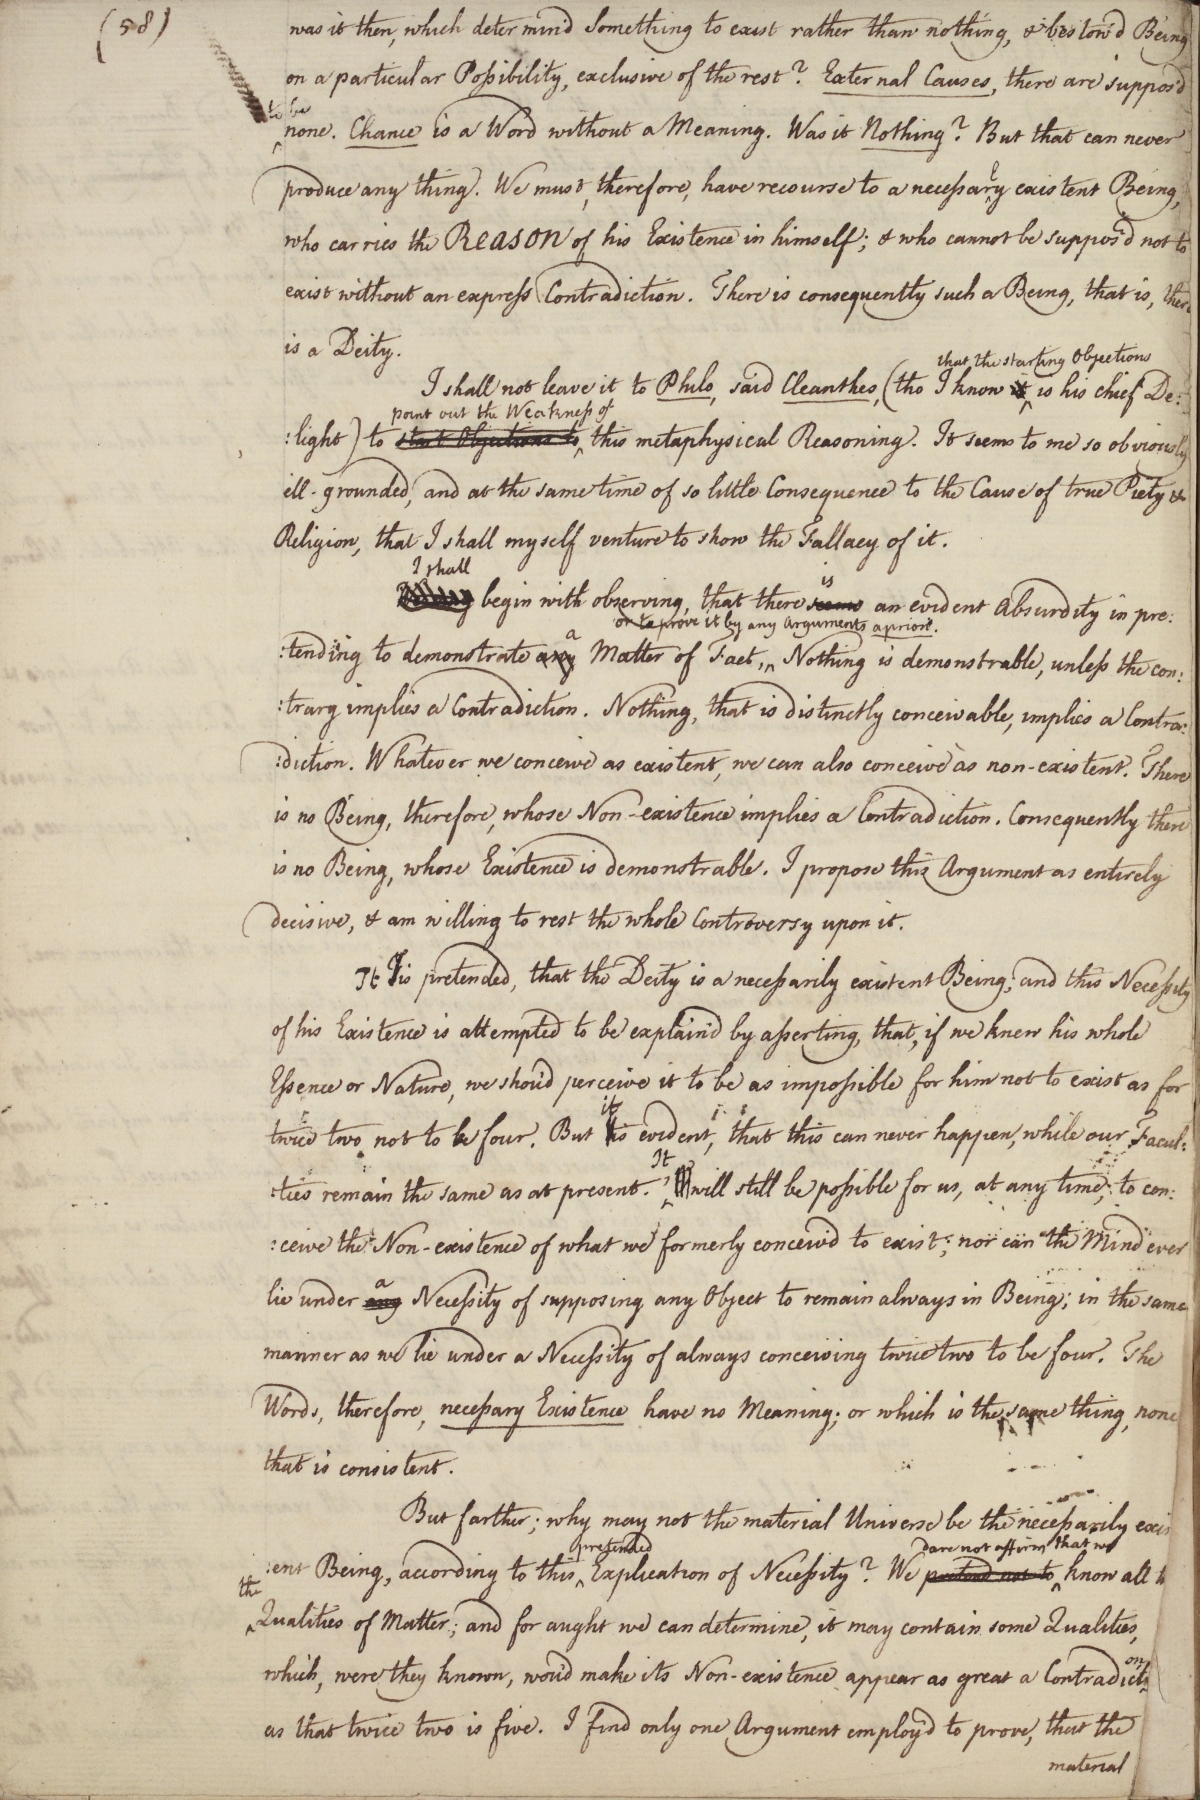 (58)
was it then, which determind Something to exist rather than nothing, & bestow'd Being
on a particular Possibility, exclusive of the rest? External Causes, there are suppos'd
to be
none. Chance is a Word without a Meaning. Was it Nothing? But that can never
produce any thing. We must, therefore, have recourse to a necessary existent Being,
who carries the REASON of his Existence in himself; & who cannot be suppos'd not to
exist without an express Contradiction. There is consequently such a Being, that is, there
is a Deity.
that the starting Objections
I shall not leave it to Philo, said Cleanthes, (tho I know it is his chief De:
point out the Weakness of
:light) to start Objections to this metaphysical Reasoning. It seems to me so obviously
ill-grounded, and at the same time of so little Consequence to the Cause of true Piety &
Religion, that I shall myself venture to show the Fallacy of it.
I shall is
begin with observing, that there seems an evident Absurdity in pre:
or to prove it by any Arguments a priori.
a
:tending to demonstrate any Matter of Fact, Nothing is demonstrable, unless the con:
:trary implies a Contradiction. Nothing, that is distinctly conceivable, implies a Contra:
:diction. Whatever we conceive as existent, we can also conceive as non-existent. There
is no Being, therefore, whose Non-existence implies a Contradiction. Consequently there
is no Being, whose Existence is demonstrable. I propose this Argument as entirely
decisive, & am willing to rest the whole Controversy upon it.
It is pretended, that the Deity is a necessarily existent Being; and this Necessity
of his Existence is attempted to be explain'd by asserting, that, if we knew his whole
Essence or Nature, we shou'd perceive it to be as impossible for him not to exist as for
it
twice two not to be four. But is evident, that this can never happen, while our Facul:
It
:ties remain the same as at present. will still be possible for us, at any time, to con:
:ceive the Non-existence of what we formerly conceiv'd to exist; nor can the Mind ever
a
lie under any Necessity of supposing any Object to remain always in Being; in the same
manner as we lie under a Necessity of always conceiving twice two to be four. The
Words, therefore, necessary Existence have no Meaning; or which is the same thing, none
that is consistent.
But farther; why may not the material Universe be the necessarily exis
pretended dare not affirm that we
:ent Being, according to this Explication of Necessity? We pretend not to know all
the
Qualities of Matter; and for aught we can determine, it may contain some Qualities,
on
which, were they known, wou'd make its Non-existence appear as great a Contradicti
as that twice two is five. I find only one Argument employ'd to prove, that the
material